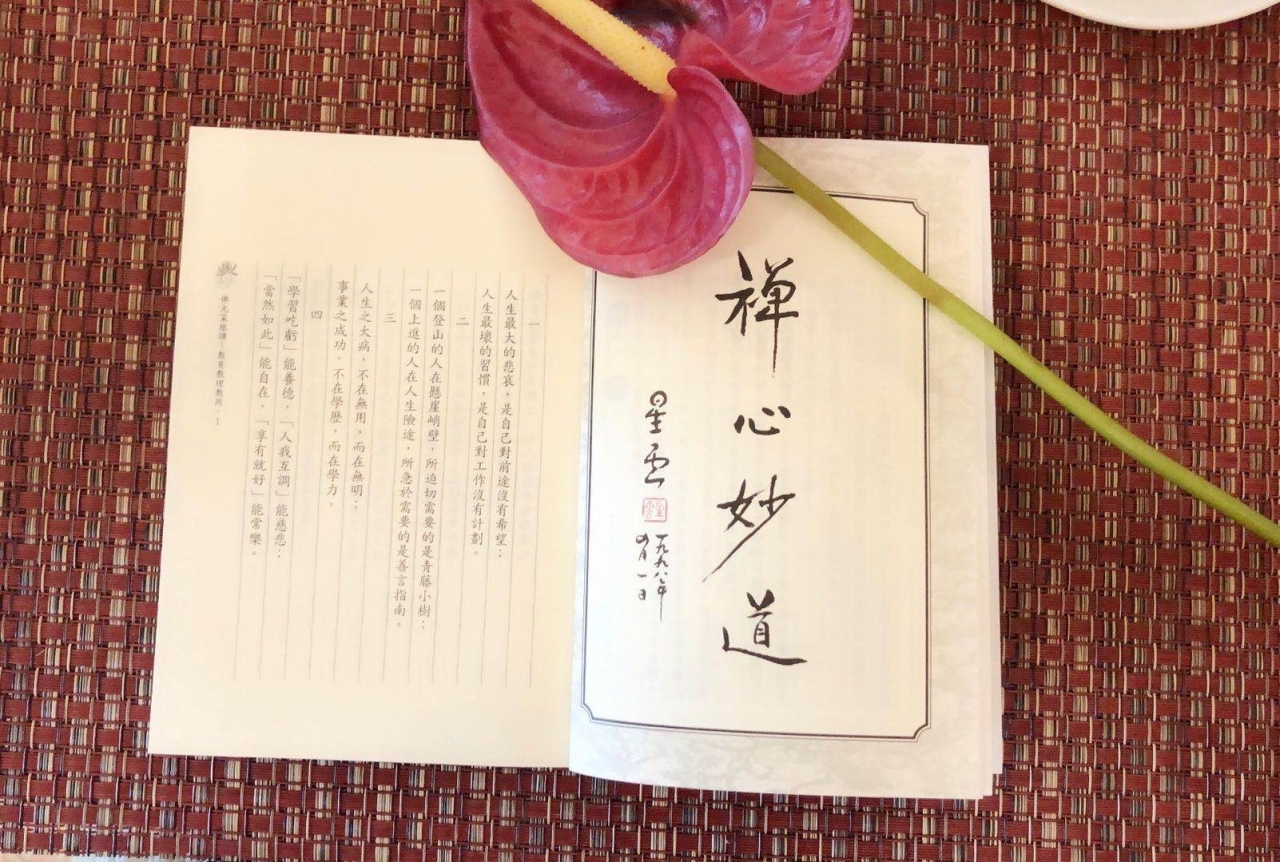 禪心妙道
星雲
一九九八年
四月一日
一
人生最大的悲哀，是自己對前途沒有希望；
人生最壞的習慣，是自己對工作沒有計劃。
二
一個登山的人在懸崖峭壁，所迫切需要的是青藤小樹；
一個上進的人在人生險途，所急於需要的是善言指南。
三
人生之大病，不在無用，而在無明；
事業之成功，不在學歷，而在學力。
四
「學習吃虧」能養德，「人我互調」能慈悲；
「當然如此」能自在，「享有就好」能常樂。
佛光菜根譚—教育教理教用 1